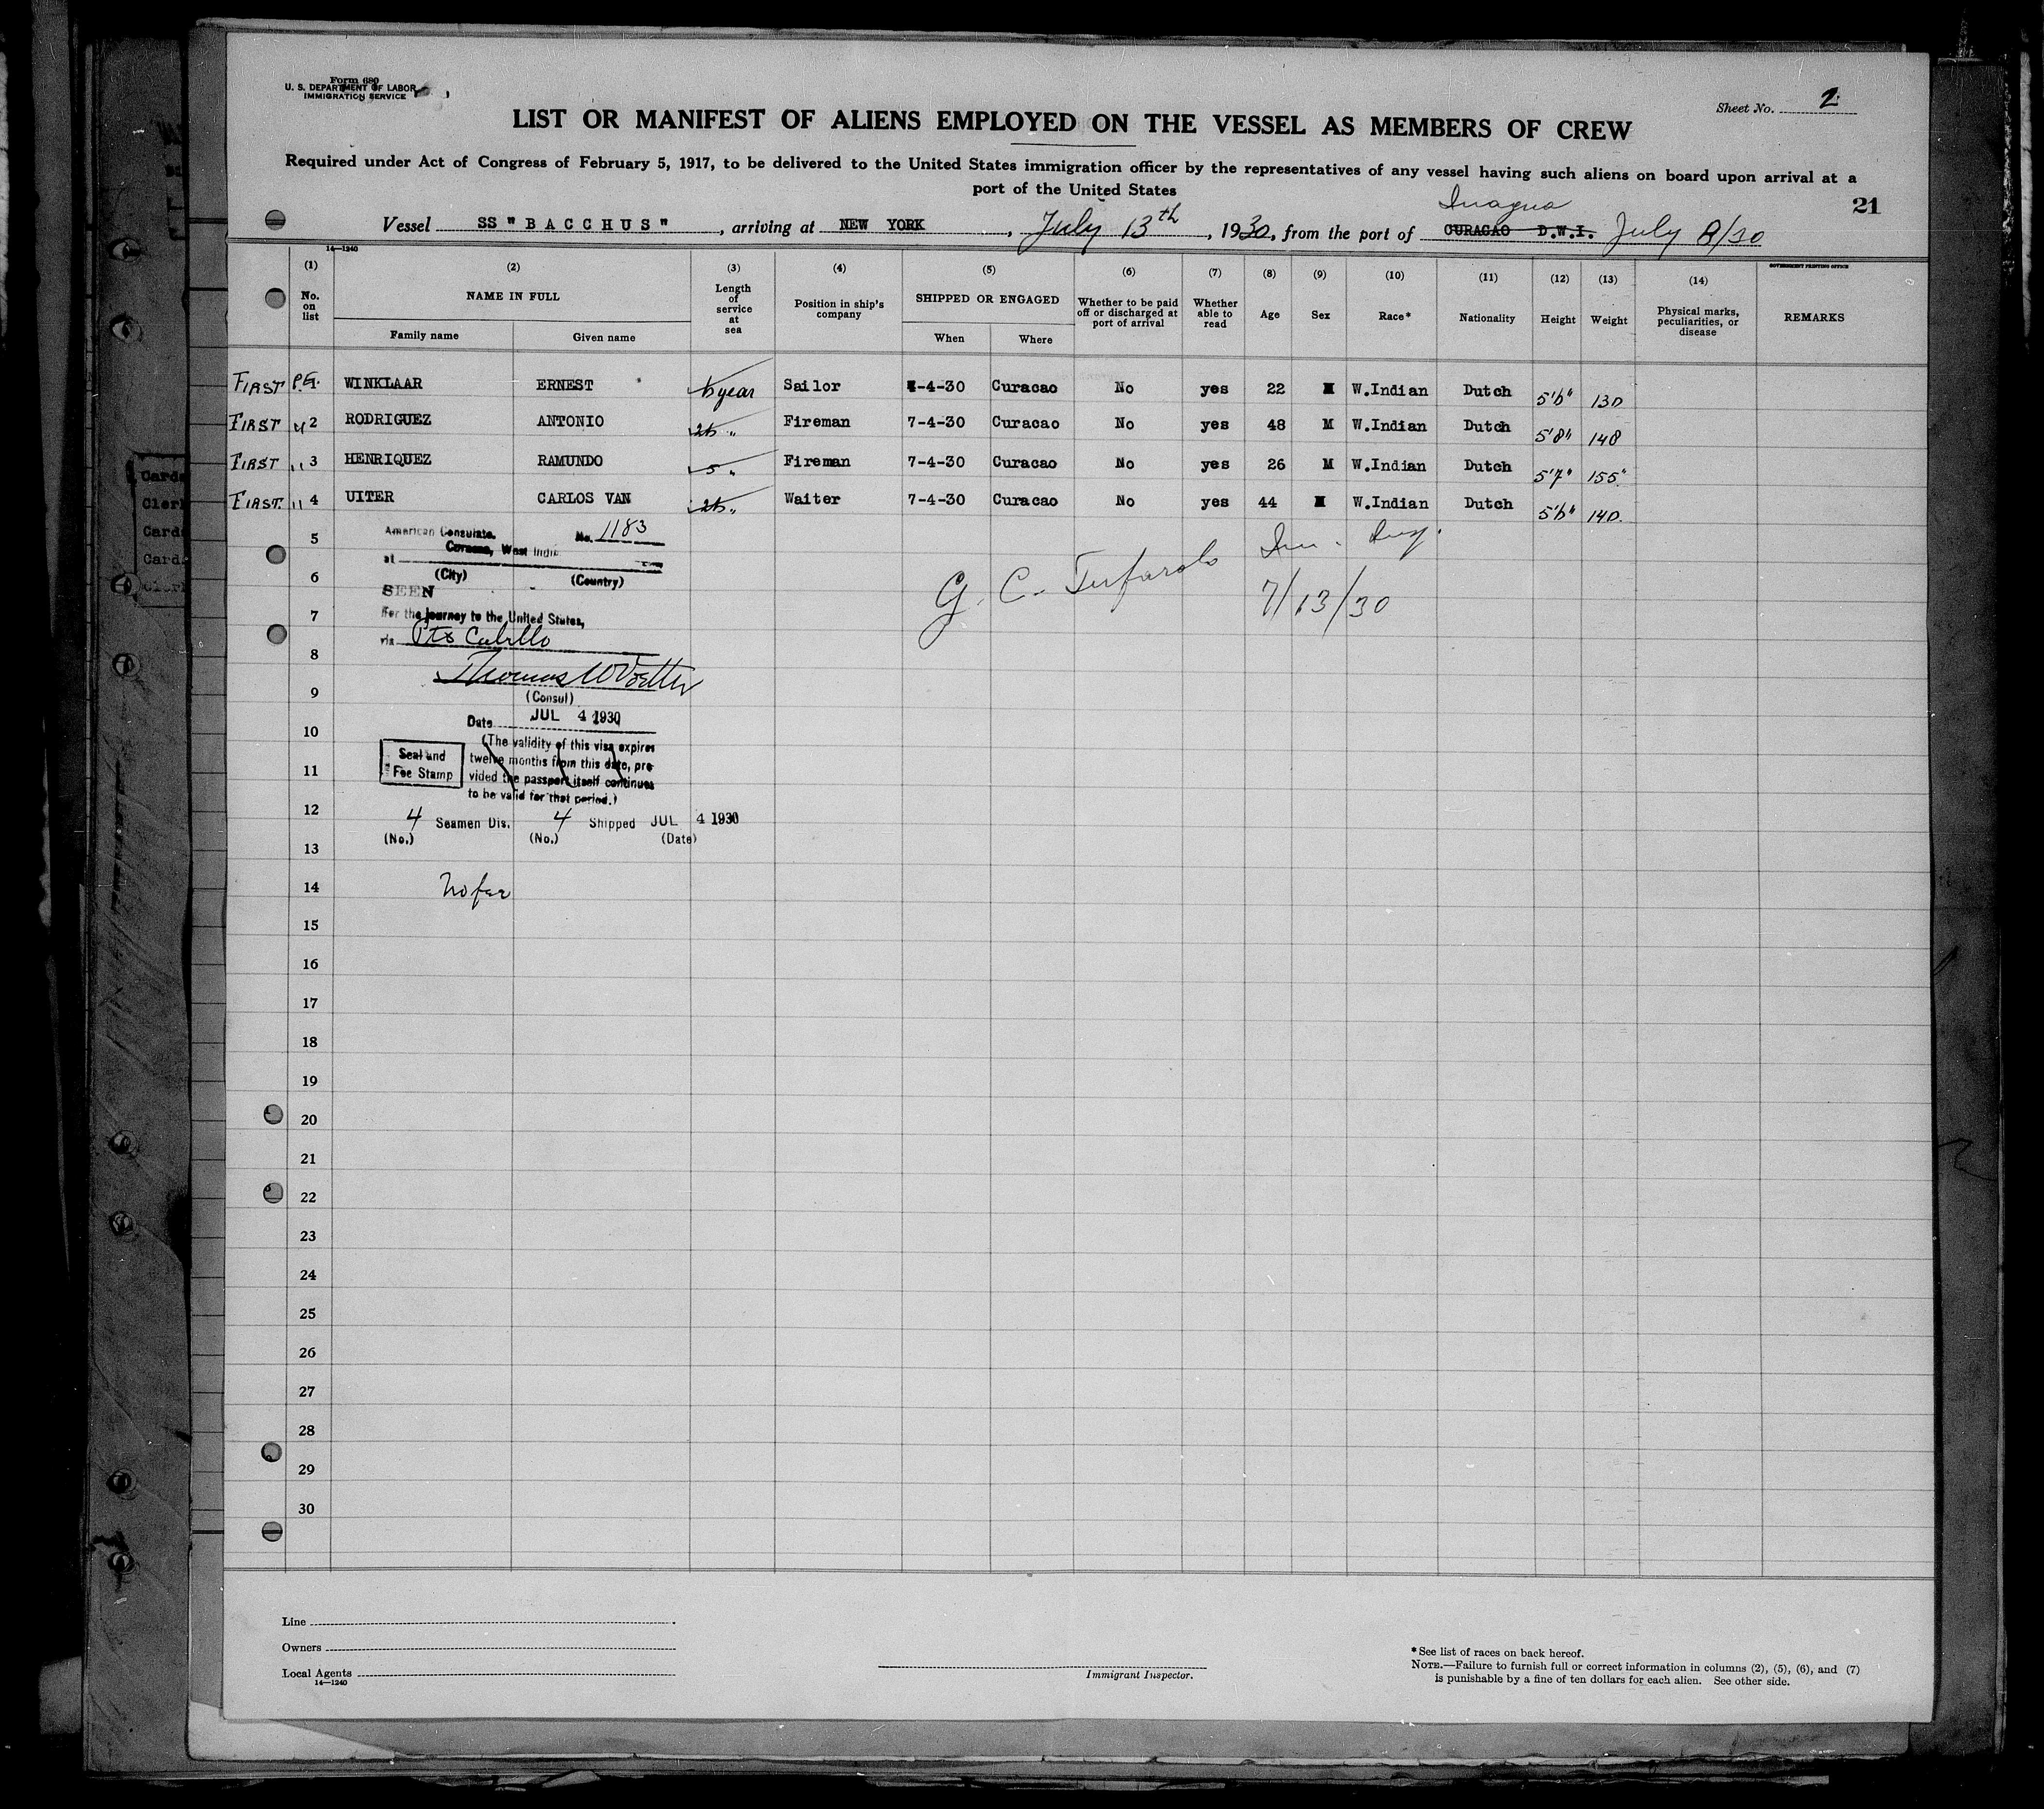 Form 680
U. S. DEPARTMENT OF LABOR
IMMIGRATION SERVICE
Sheet No. 2
LIST OR MANIFEST OF ALIENS EMPLOYED ON THE VESSEL AS MEMBERS OF CREW
Required under Act of Congress of February 5, 1917, to be delivered to the United States immigration officer by the representatives of any vessel having such aliens on board upon arrival at a
port of the United States
Inagua
21
Vessel SS "BACCHUS", arriving at NEW YORK, July 13th, 1930, from the port of CURACAO D.W.I. July 8/30
14—1240
GOVERNMENT PRINTING OFFICE
(1) (2) (3) (4) (5) (6) (7) (8) (9) (10) (11) (12) (13) (14)
No. on list NAME IN FULL Length of service at sea Position in ship's company SHIPPED OR ENGAGED Whether to be paid off or discharged at port of arrival Whether able to read Age Sex Race* Nationality Height Weight Physical marks, peculiarities, or disease REMARKS
Family name Given name When Where
FIRST P.G. WINKLAAR ERNEST year Sailor -4-30 Curacao No yes 22 M W.Indian Dutch 5'6" 130
FIRST " 2 RODRIGUEZ ANTONIO " Fireman 7-4-30 Curacao No yes 48 M W.Indian Dutch 5'8" 148
FIRST " 3 HENRIQUEZ RAMUNDO 5 " Fireman 7-4-30 Curacao No yes 26 M W.Indian Dutch 5'7" 155
FIRST. " 4 UITER CARLOS VAN " Waiter 7-4-30 Curacao No yes 44 M W.Indian Dutch 5'6" 140
5
6
7
8
9
10
11
12
13
14
15
16
17
18
19
20
21
22
23
24
25
26
27
28
29
30
American Consulate. No. 1183
at Curacao, West Indi
(City) (Country)
SEEN
For the journey to the United States,
via Pto Cabello
(Consul)
Date JUL 4 1930
(The validity of this visa expires
twelve months from this date, pro-
vided the passport itself continues
to be valid for that period.)
Seal and
Fee Stamp
4 Seamen Dis. 4 Shipped JUL 4 1930
(No.) (No.) (Date)
No fee
G. C. Imm. Insp.
7/13/30
Line
Owners
Local Agents
14—1240
Immigrant Inspector.
*See list of races on back hereof.
NOTE.—Failure to furnish full or correct information in columns (2), (5), (6), and (7)
is punishable by a fine of ten dollars for each alien. See other side.
Card
Cler
Card
Card
Cler